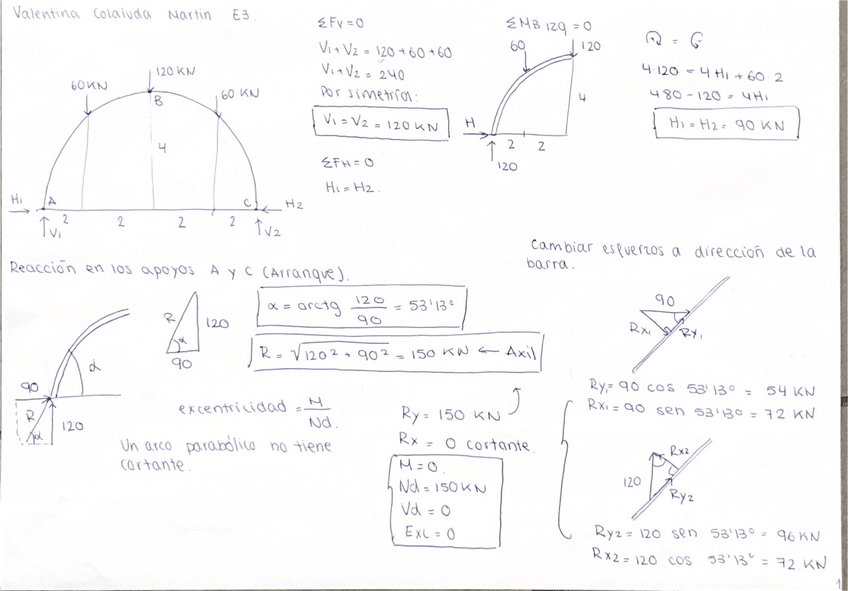 Valentina Colaiuda Martin E3.
60KN
120 KN
60 KN
B
4
H1
A
C
H2
2
2
2
2
V1
V2
ΣFv=0
V1+V2 = 120+60+60
V1+V2 = 240
Por simetría:
V1 = V2 = 120 KN
ΣFH=0
H1=H2.
ΣMB izq = 0
60
120
4
H
2
2
120
4·120 = 4H1 + 60·2
480 - 120 = 4H1
H1 = H2 = 90 KN
Reacción en los apoyos A y C (Arranque).
α
90
R
α
120
R
120
α
90
α = arctg 120/90 = 53'13°
R = √120² + 90² = 150 KN ← Axil
excentricidad = M/Nd.
Un arco parabólico no tiene
cortante.
Ry = 150 KN
Rx = 0 cortante.
M = 0.
Nd = 150 KN
Vd = 0
Exc = 0
Cambiar esfuerzos a dirección de la
barra.
90
Rx1
Ry1
Ry1 = 90 cos 53'13° = 54 KN
Rx1 = 90 sen 53'13° = 72 KN
Rx2
120
Ry2
Ry2 = 120 sen 53'13° = 96 KN
Rx2 = 120 cos 53'13° = 72 KN
1